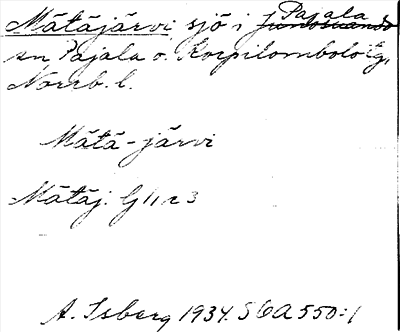 Mätäjärvi, sjö i Pajala
sn, Pajala o. Korpilombolo tg,
Norrb. l.
Mätä-järvi
Mätäj.
A. Isberg 1934. SGA 550:1